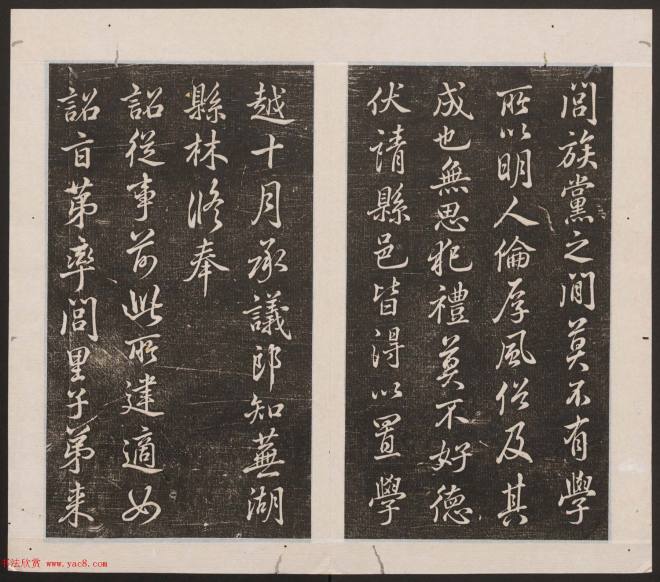 閭族黨之間莫不有學
所以明人倫厚風俗及其
成也無思犯禮莫不好德
伏請縣邑皆得以置學
越十月承議郎知蕪湖
縣林脩奉
詔從事前此所建適如
詔旨苐率閭里子苐来
书法欣赏 www.yac8.com